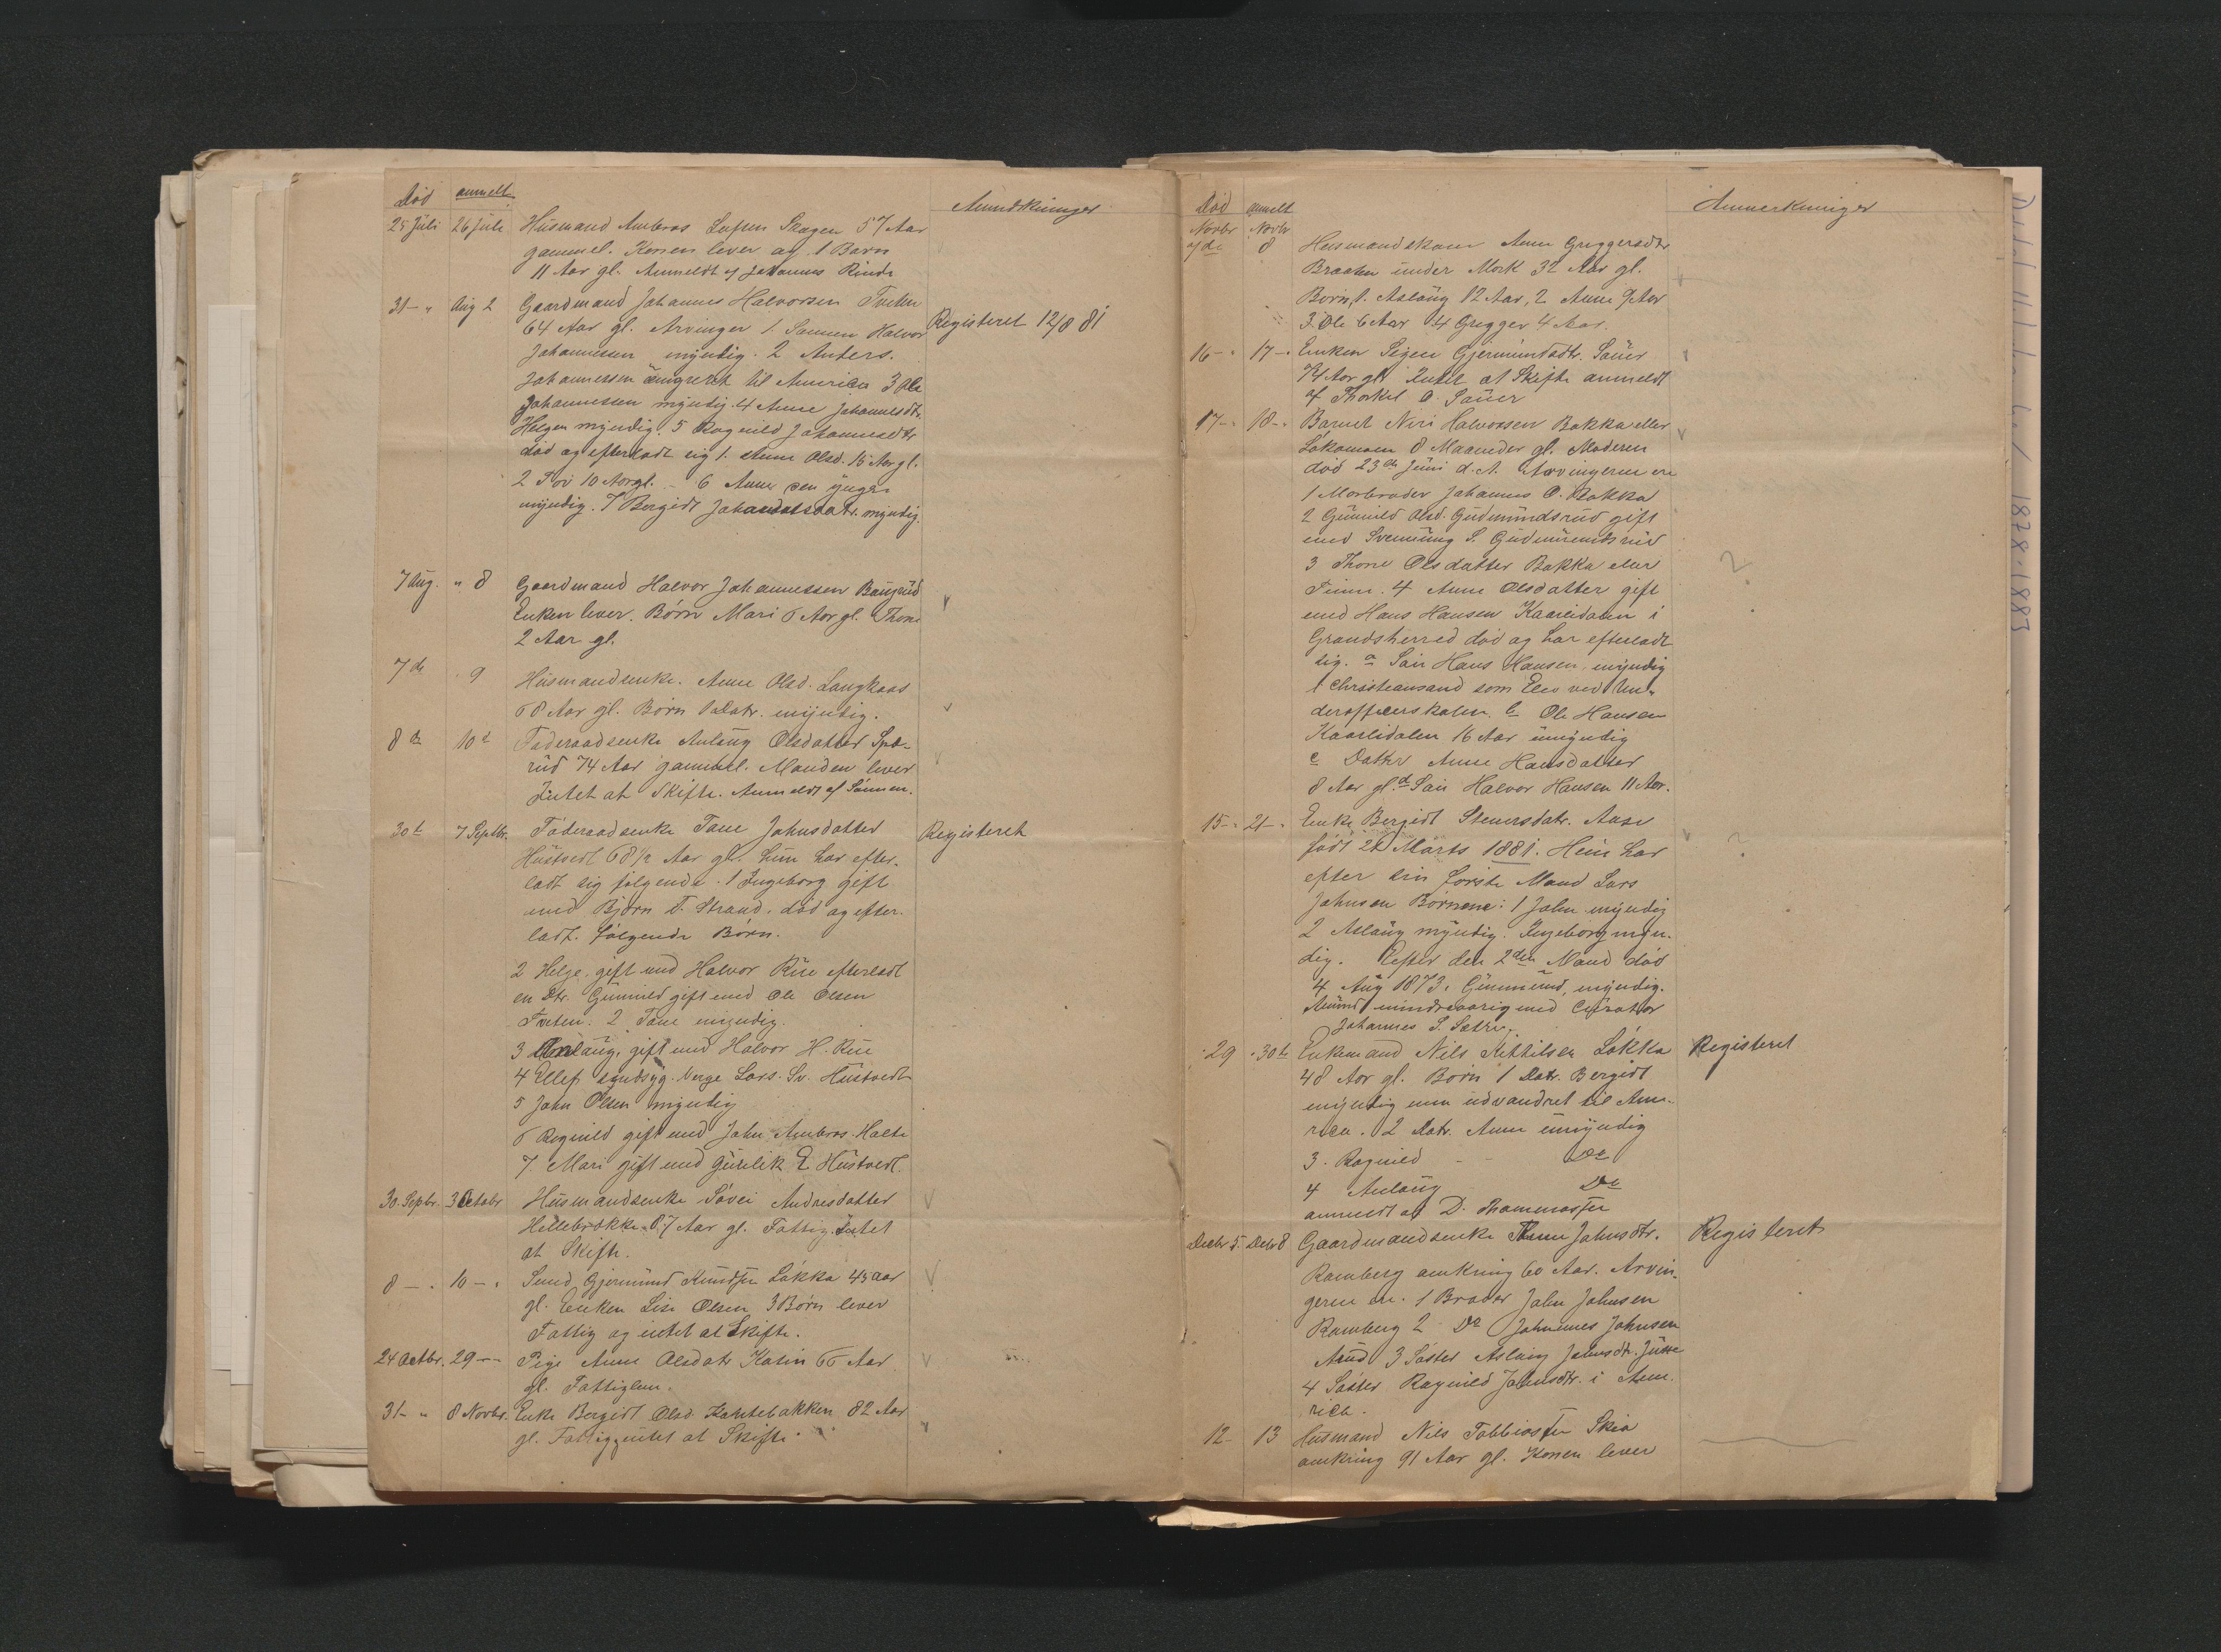 Död anmelt Anmerkninger
25 Juli 26 Juli Husmand Ambros Skagen 57 Aar
gammel. Konen lever og 1 Barn
11 Aar gl. Anmeldt af Johannes Rinde
31 - " Aug 2 Gaardmand Johannes Halvorsen
64 Aar gl. Arvinger 1. Sønnen Halvor Registeret 12/8 81
Johannessen myndig. 2 Anders.
Johannessen emigreret til America 3 Ole
Johannessen myndig. 4 Anne Johannesdtr.
Helgen myndig. 5 Ragnild Johannesdtr
död og efterladt sig 1. Anne Olsd. 15 Aar gl.
2 Tov 10 Aar gl. - 6 Anne den yngre
myndig. 7 Bergidt myndig.
7 Aug. " 8 Gaardmand Halvor Johannessen Baugrud
Enken lever. Børn Mari 6 Aar gl. Thone
2 Aar gl.
7 de " 9 Husmandsenke. Anne Olsd. Langkaas
68 Aar gl. Børn 1 Datr. myndig.
8 de 10 d Føderaadsenke Anlaug Olsdatter Spæ-
rud 74 Aar gammel. Manden lever
Intet at Skifte. Anmeldt af Sønnen.
30 t 7 Septbr. Føderaadsenke Tane Johnsdatter Registeret
Hustvedt 68 1/2 Aar gl. hun har efter-
ladt sig følgende. 1 Ingeborg gift
med Bjørn T. Strand. död og efter-
ladt. følgende Børn.
2 Helge gift med Halvor Rue efterladt
en Dtr. Gunnild gift med Ole Olsen
Tveten. 2 Tane myndig.
3 Anlaug, gift med Halvor H. Rue
4 Ellef sindsyg. Verge Lars. Sv. Hustvedt
5 John Olsen myndig
6 Regnild gift med John Ambros. Holte
7. Mari gift med Gunlik E. Hustvedt.
30. Sepbr. 3 Octobr Husmandsenke Søvei Andresdatter
Hellebrække. 87 Aar gl. Fattig. Intet
at Skifte.
8 - " 10 - " Gjermund Knudsen Løkka 45 aar
gl. Enken Lise Olsen, 3 Børn lever
Fattig og intet at Skifte.
24 Octbr. 29 - - Pige Anne Olsdatr Kasin 66 Aar
gl. Fattiglem.
31 - " 8 Novbr. Enke Bergidt Olsd. 82 Aar
gl. Fattig intet at Skifte.
Död anmelt Anmerkninger
Novbr Novbr
7 de 8 Husmandskone Anne Greggersdtr
Braaten under Mork 32 Aar gl.
Børn, 1. Aslaug 12 Aar, 2 Anne 9 Aar
3. Ole 6 Aar 4 Gregger 4 Aar.
16 - " 17 - " Enken Sigen Gjermundsdtr. Sauer
74 Aar gl. Intet at Skifte anmeldt
af Thorkil O. Sauer
17 - " 18 - " Barnet Niri Halvorsen Bakka eller
Løkamoen 8 Maaneder gl. Moderen
död 23de Juni d. A. Arvingerne ere
1 Morbroder Johannes O. Bakka
2 Gunnild Olsd. Gudmundsrud gift
med Svennung S. Gudmundsrud
3 Thone Olsdatter Bakka eller
Tinn. 4 Anne Olsdatter gift ?
med Hans Hansen Kaasidalen i
Grandsherred död og har efterladt
sig. a Søn Hans Hansen, myndig
i Christiansand som Elev ved Un-
derofficerskolen. b Ole Hansen
Kaasidalen 16 Aar umyndig
c Datter Anne Hansdatter
8 Aar gl. d Søn Halvor Hansen 11 Aar.
15 - " 21 - " Enke Bergidt Steners datr. Aase
født 21 Marts 1881. Hun har ?
efter sin første Mand Lars
Johnsen Børnene: 1 John myndig
2 Aslaug myndig. Ingeborg myn-
dig. Efter den 2den Mand död
4 Aug 1873. Gunmund, myndig.
Amund mindreaarig med Curator
Johannes S. Sætre.
" 29 " 30te Enkemand Nils Kittilsen Løkka Registeret
48 Aar gl. Børn 1 Datr. Bergidt
myndig men udvandret til Ame-
rica. 2 Datr. Anne umyndig
3. Ragnild - - Do
4 Anlaug Do
anmeldt af D. Thommassen
Decbr 5. Decbr 8 Gaardmandsenke Anne Johnsdtr. Registeret
Ramberg omkring 60 Aar. Arvin-
gerne ere. 1 Broder John Johnsen
Ramberg 2 Do Johannes Johnsen
3 Søster Aslaug Johnsdtr.
4 Søster Ragnild Johnsdtr. i Ame-
rica.
12 - 13 Husmand Nils Tobbiassen Skia
omkring 91 Aar gl. Konen lever
1878-1883